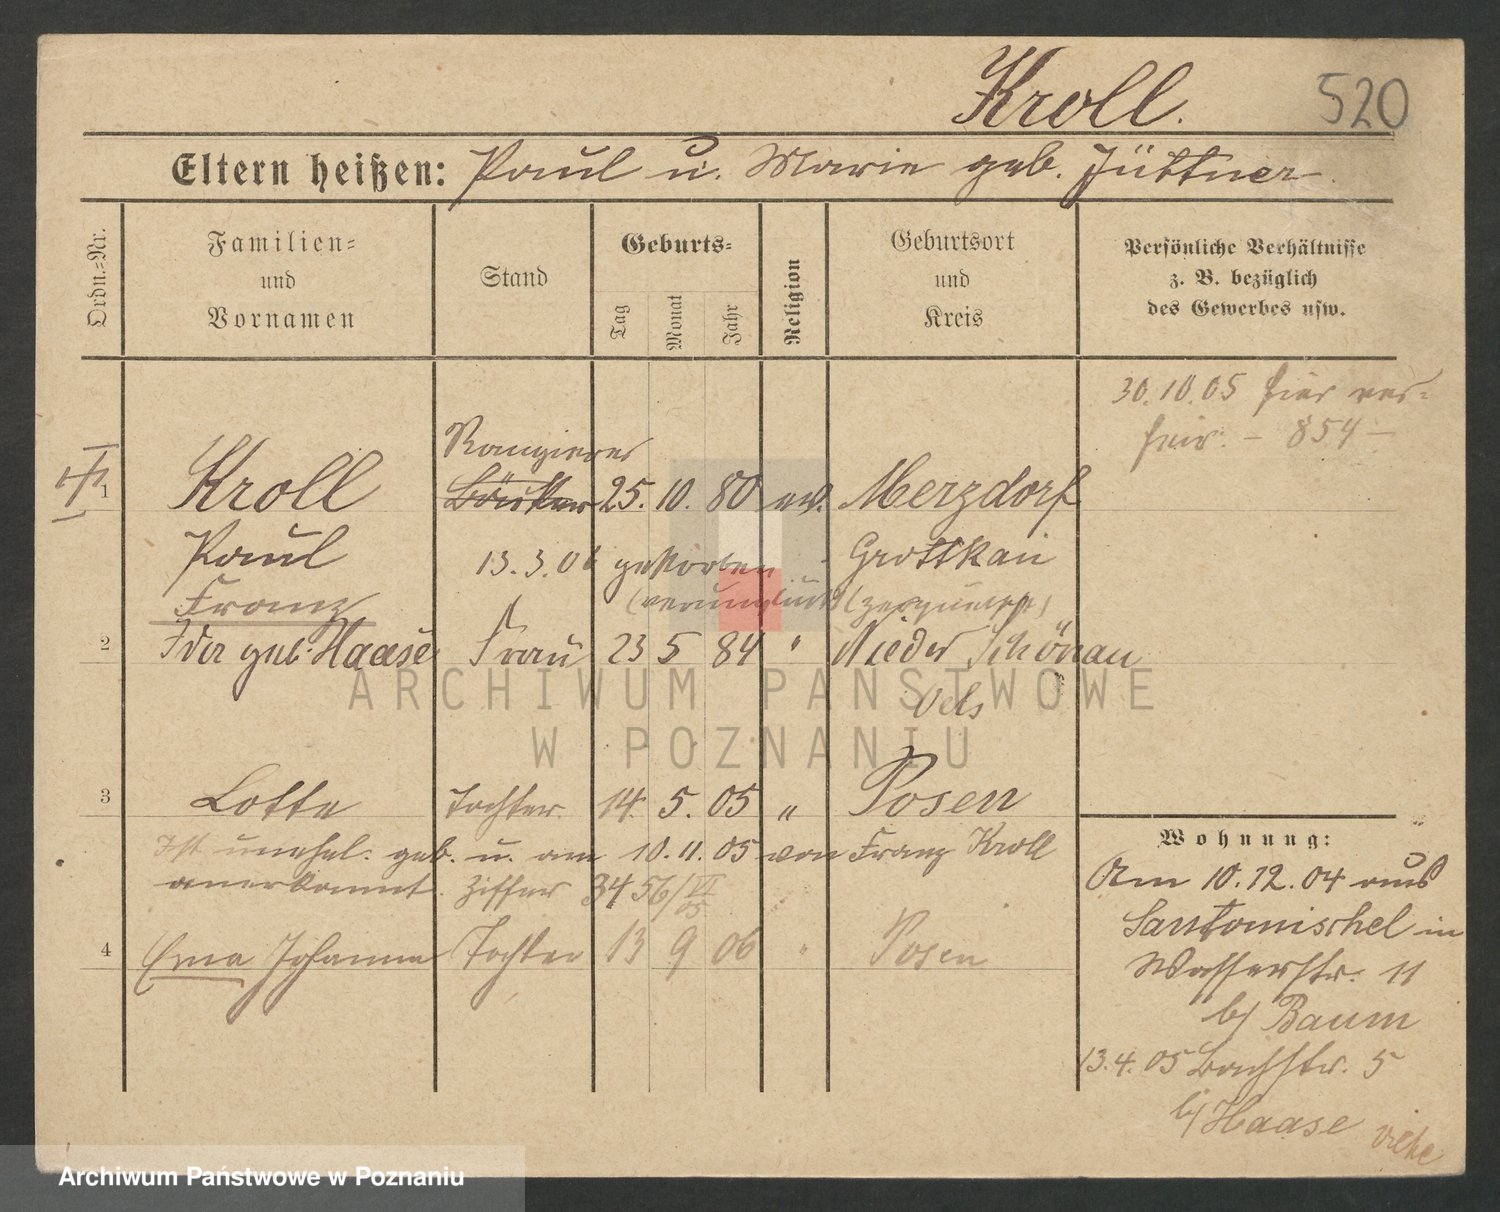 Kroll.
520
Eltern heißen: Paul u. Marie geb. Jüttner.
Ordn.-Nr.
Familien-
und
Vornamen
Stand
Geburts-
Tag
Monat
Jahr
Religion
Geburtsort
und
Kreis
Persönliche Verhältnisse
z. B. bezüglich
des Gewerbes usw.
30.10.05 hier ver-
heir. – 854 –
Rangierer
1 Kroll 25. 10. 80 ev. Merzdorf
Paul 13.3.06 gestorben Grottkau
Franz (verunglückt)
2 Ida geb. Haase Frau 23 5 84 " Nieder Schönau
Oels
3 Lotte Tochter 14. 5. 05 " Posen
Ist unehel. geb. u. am 10.11.05 von Franz Kroll
anerkannt. Ziffer 3456/VI
05
4 Erna Johanna Tochter 13 9 06 " Posen
Wohnung:
Am 10.12.04 aus
Santomischel in
Wasserstr. 11
b/ Baum
13.4.05 Bachstr. 5
b/ Haase
ARCHIWUM PAŃSTWOWE
W POZNANIU
Archiwum Państwowe w Poznaniu